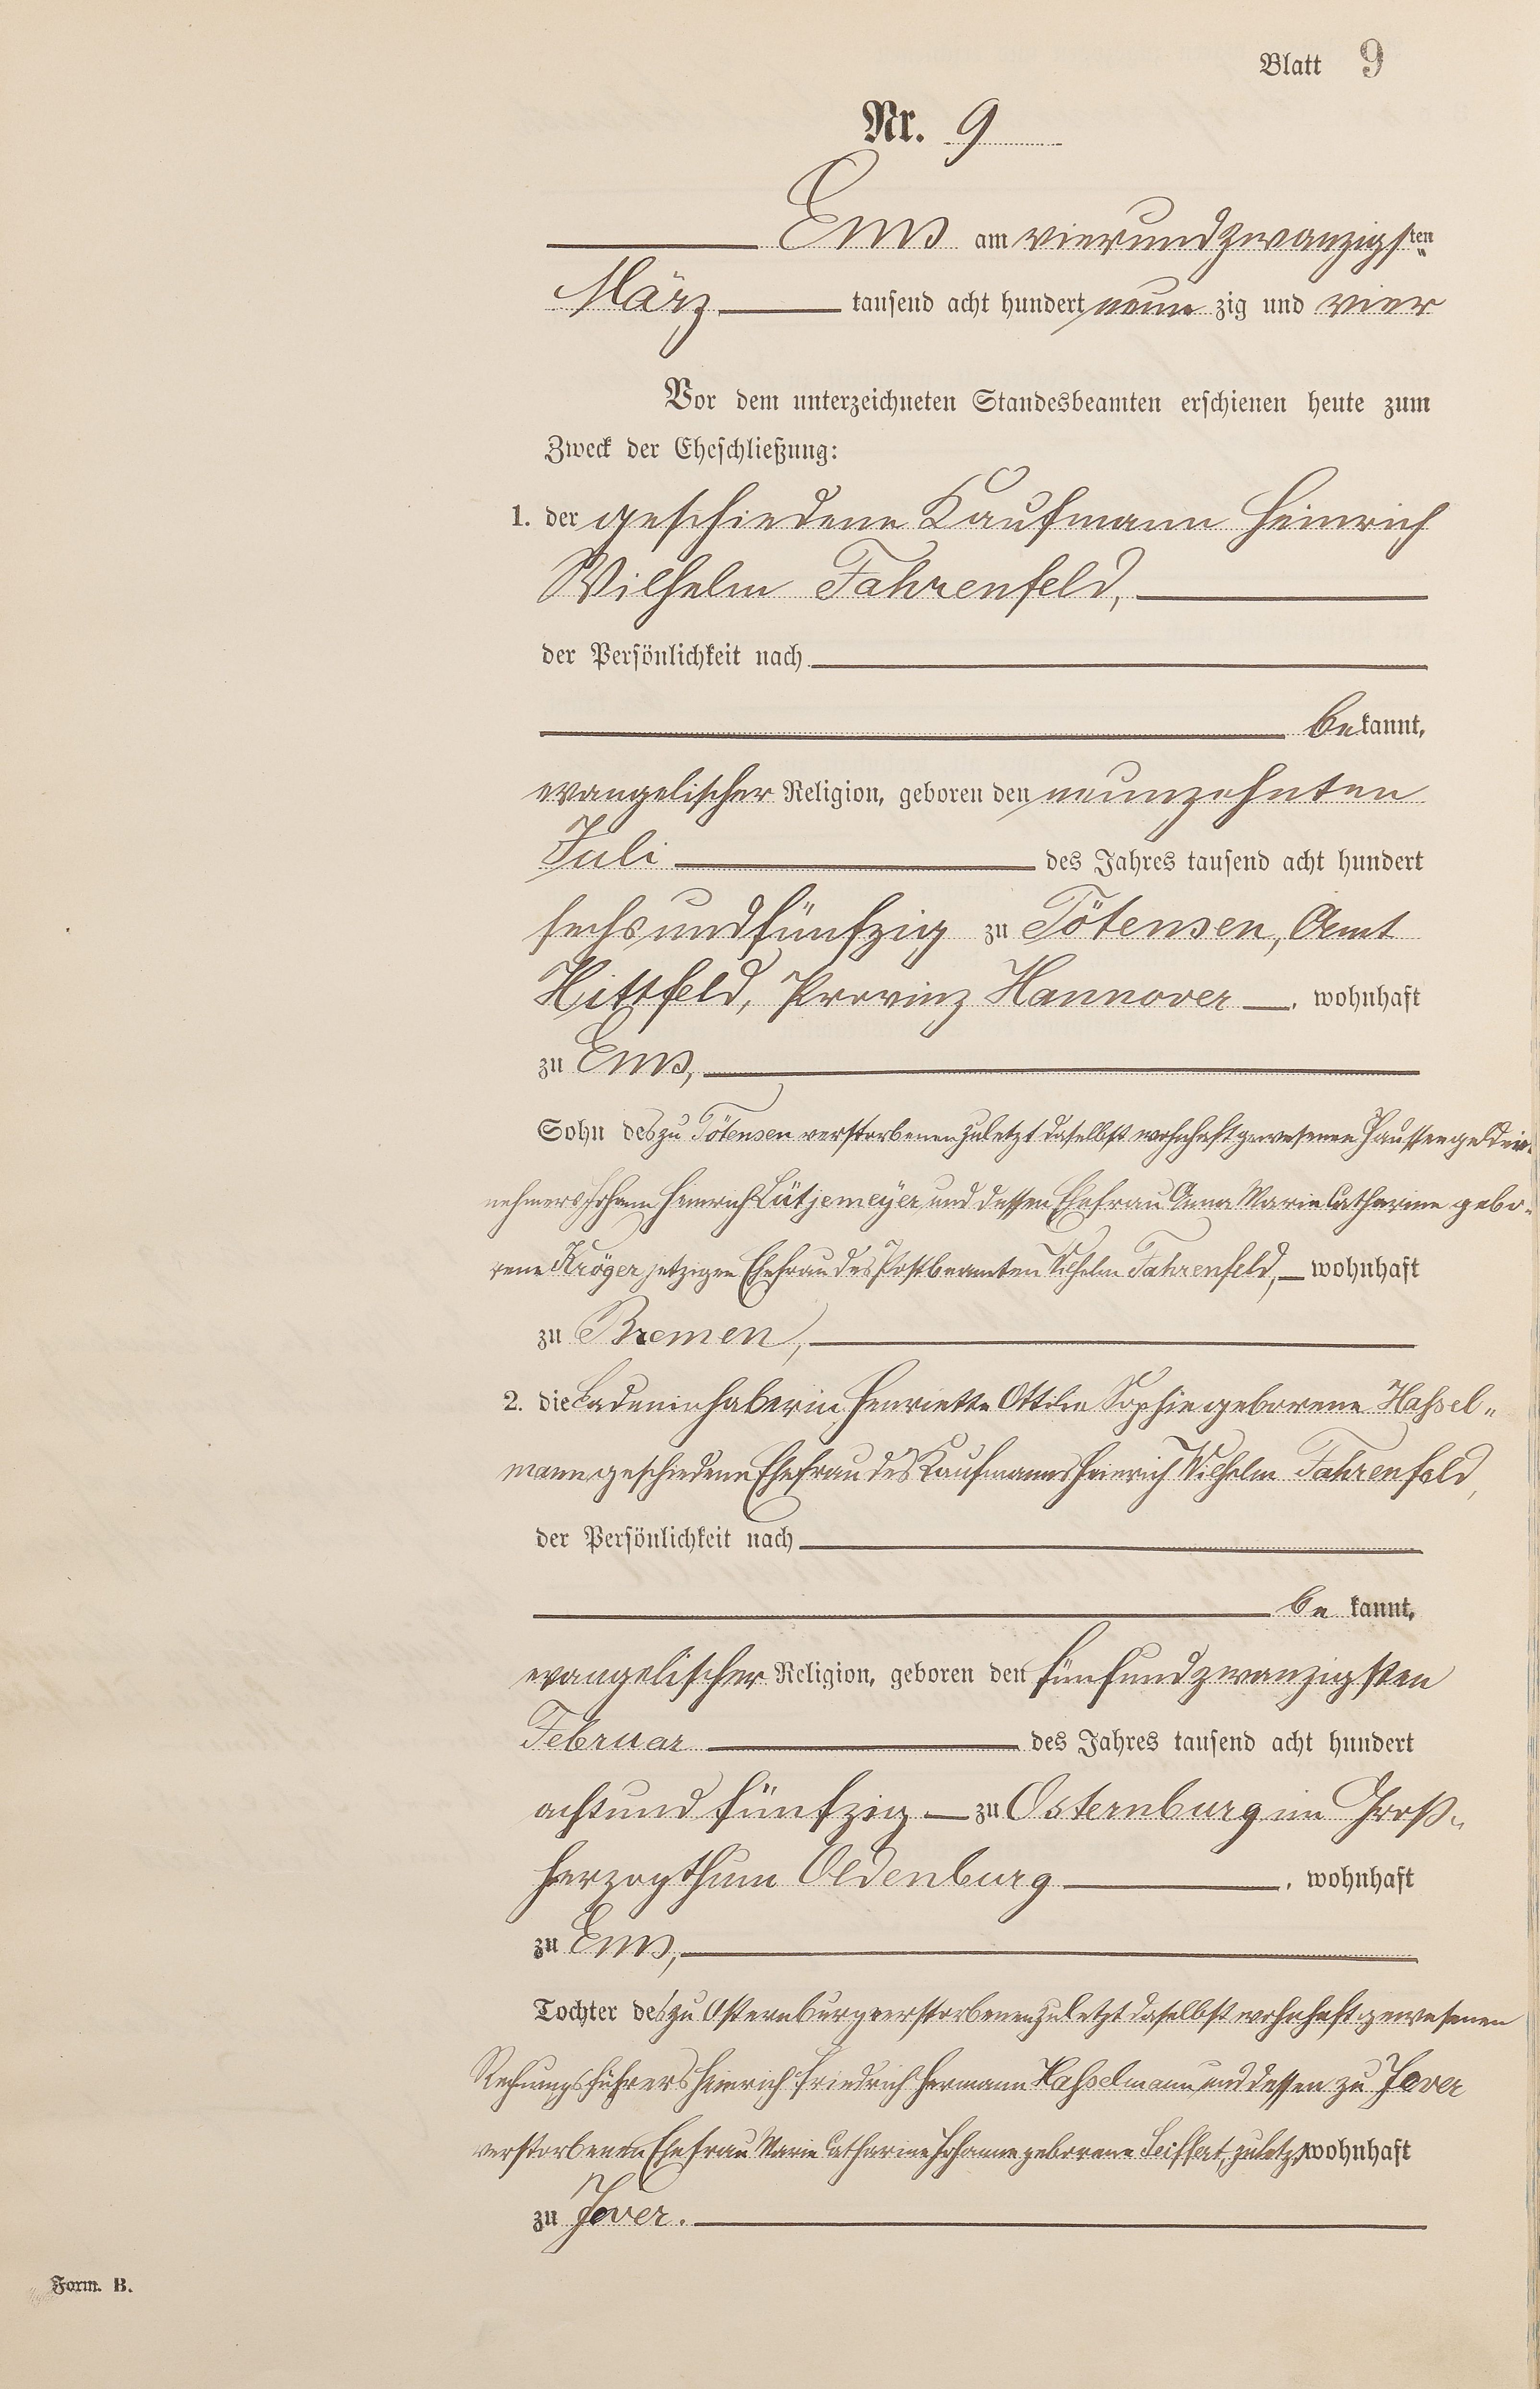 Blatt 9
Nr. 9
Ems am vierundzwanzigsten
März tausend acht hundert neun zig und vier
Vor dem unterzeichneten Standesbeamten erschienen heute zum
Zweck der Eheschließung:
1. der geschiedene Kaufmann Heinrich
Wilhelm Fahrenfeld,
der Persönlichkeit nach
be kannt,
evangelischer Religion, geboren den neunzehnten
Juli des Jahres tausend acht hundert
sechsundfünfzig zu Tötensen, Amt
Hittfeld, Provinz Hannover, wohnhaft
zu Ems,
Sohn des zu Tötensen verstorbenen zuletzt daselbst wohnhaft gewesenen
nehmers Johann Heinrich Lütjemeÿer, und dessen Ehefrau Anna Marie Catharine gebo-
rene Kröger, jetzigen Ehefrau des Postbeamten Wilhelm Fahrenfeld, wohnhaft
zu Bremen,
2. die Ladeninhaberin Henriette Ottilie Sophie geborene Hassel-
mann geschiedene Ehefrau des Kaufmanns Heinrich Wilhelm Fahrenfeld,
der Persönlichkeit nach
be kannt,
evangelischer Religion, geboren den fünfundzwanzigsten
Februar des Jahres tausend acht hundert
achtundfünfzig zu Osternburg im Groß-
herzogthum Oldenburg, wohnhaft
zu Ems,
Tochter des zu Osternburg verstorbenen zuletzt daselbst wohnhaft gewesenen
Rechnungsführers Heinrich Friedrich Hermann Hasselmann und dessen zu Jever
verstorbenen Ehefrau Marie Catharine Johanne geborene Seiffert, zuletzt wohnhaft
zu Jever.
Form. B.